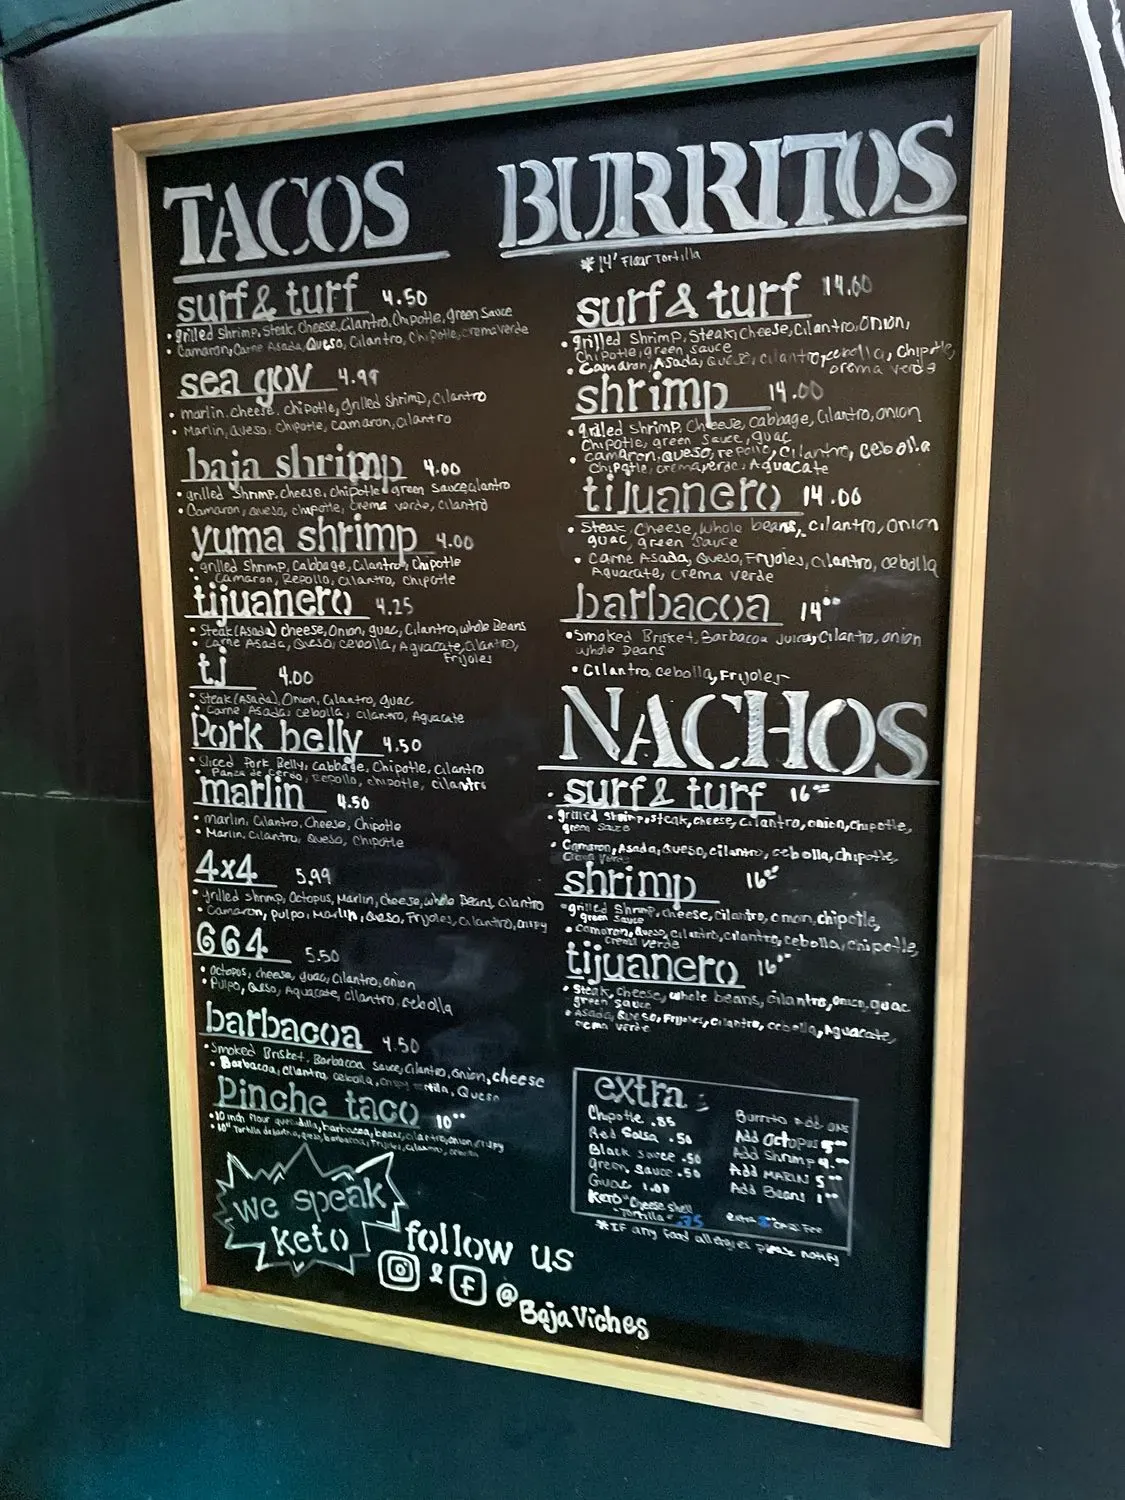 TACOS
surf & turf 4.50
• grilled Shrimp, Steak, Cheese, Cilantro, Chipotle, green Sauce
• Camaron, Carne Asada, Queso, Cilantro, Chipotle, crema verde
sea gov 4.99
• marlin, cheese, chipotle, grilled shrimp, cilantro
• Marlin, Queso, Chipotle, camaron, cilantro
baja shrimp 4.00
• grilled Shrimp, cheese, chipotle, green Sauce, cilantro
• Camaron, queso, chipotle, crema verde, cilantro
yuma shrimp 4.00
• grilled Shrimp, Cabbage, Cilantro, Chipotle
• Camaron, Repollo, cilantro, chipotle
tijuanero 4.25
• Steak (Asada) cheese, Onion, guac, Cilantro, whole Beans
• Carne Asada, Queso, cebolla, Aguacate, cilantro,
Frijoles
tj 4.00
• Steak (Asada), Onion, Cilantro, guac
• Carne Asada, cebolla, cilantro, Aguacate
Pork belly 4.50
• Sliced Pork Belly, cabbage, Chipotle, Cilantro
Repollo, chipotle, cilantro
marlin 4.50
• marlin, Cilantro, Cheese, Chipotle
• Marlin, cilantro, Queso, Chipotle
4x4 5.99
• grilled Shrimp, Octopus, Marlin, cheese, whole Beans, cilantro
• Camaron, pulpo, Marlin, Queso, Frijoles, cilantro, crispy
664 5.50
• octopus, cheese, guac, cilantro, onion
• Pulpo, Queso, Aguacate, cilantro, cebolla
barbacoa 4.50
• Smoked Brisket, Barbacoa Sauce, cilantro, onion, cheese
• Barbacoa, cilantro, cebolla, crispy tortilla, Queso
Pinche taco 10⁰⁰
• 10 inch flour quesadilla, barbacoa, beans, cilantro, onion, crispy
we speak
keto
follow us
& @
BajaViches
BURRITOS
* 14' Flour Tortilla
surf & turf 14.00
• grilled Shrimp, Steak, Cheese, Cilantro, Onion,
Chipotle, green sauce
• Camaron, Asada, Queso, cilantro, cebolla, Chipotle,
crema verde
shrimp 14.00
• grilled Shrimp, Cheese, cabbage, Cilantro, onion
Chipotle, green sauce, guac
• Camaron, Queso, repollo, Cilantro, Cebolla
Chipotle, crema verde, Aguacate
tijuanero 14.00
• Steak, Cheese, Whole beans, cilantro, Onion
guac, green sauce
• Carne Asada, Queso, Frijoles, cilantro, cebolla
Aguacate, crema verde
barbacoa 14⁰⁰
• Smoked Brisket, Barbacoa Juice, Cilantro, onion
whole beans
• Cilantro, cebolla, Frijoles
NACHOS
• surf & turf 16⁰⁰
• grilled shrimp, steak, cheese, cilantro, onion, chipotle,
green sauce
• Camaron, Asada, Queso, cilantro, cebolla, chipotle,
crema verde
shrimp 16⁰⁰
• grilled Shrimp, cheese, cilantro, onion, chipotle,
green sauce
• Camaron, Queso, cilantro, cilantro, cebolla, chipotle,
crema verde
tijuanero 16⁰⁰
• Steak, cheese, whole beans, cilantro, onion, guac
green sauce
• Asada, Queso, Frijoles, cilantro, cebolla, Aguacate,
crema verde
extra:
Chipotle .85
Red Salsa .50
Black sauce .50
green sauce .50
Guac 1.00
Keto "Cheese shell
"Tortilla" .75
Burrito Add ons
Add Octopus 5⁰⁰
Add Shrimp 4.⁰⁰
Add MARLIN 5⁰⁰
Add Beans 1⁰⁰
extra Fee
*IF any food allergies please notify